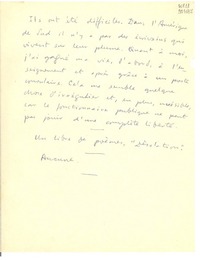 Ils ont été difficiles. Dans l'Amérique
du Sud il n'y a pas des écrivains qui
vivent sur leur plume. Quant à moi,
j'ai gagné ma vie, d'abord, à l'en-
seignement et après grâce à un poste
consulaire. Cela me semble quelque
chose d'irrégulier et, en plus, nuisible,
car le fonctionnaire publique ne peut
pas jouir d'une complète liberté.
Un libro de poèmes, "Desolation".
Aucune.